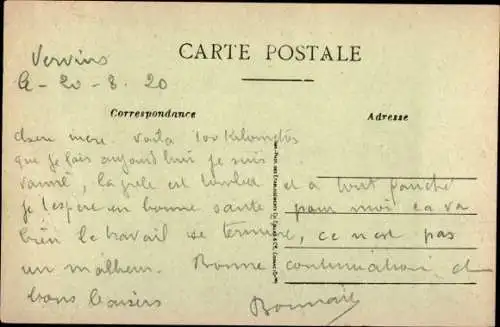 Vervins
CARTE POSTALE
le - 20 - 8. 20
Correspondance
Adresse
chere mere. voila 100 kilometres
que je fais aujourd'hui je suis
vanné, la pele est tombée et a tout gauche
je t'espere en bonne santé pour moi ca va
bien le travail se termine, ce n'est pas
un malheur. Bonne continuation et
bons baisers